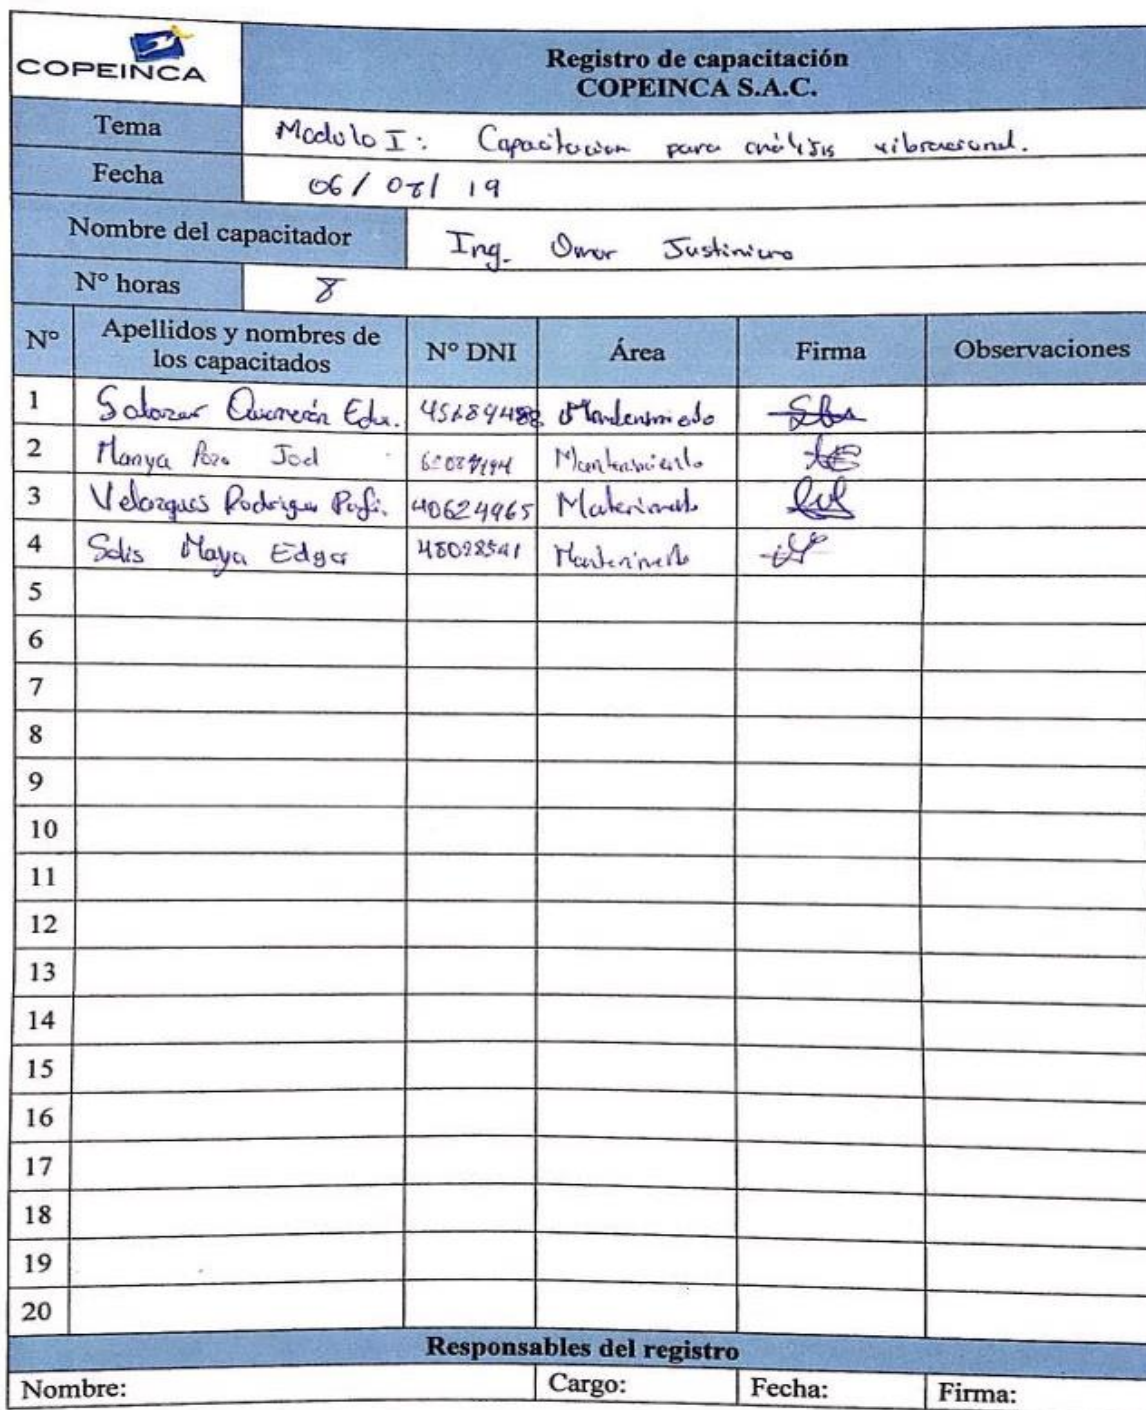 COPEINCA
Registro de capacitación
COPEINCA S.A.C.
Tema Modulo I: Capacitacion para análisis vibracional.
Fecha 06/08/19
Nombre del capacitador Ing. Omar Justiniano
N° horas 8
N° Apellidos y nombres de los capacitados N° DNI Área Firma Observaciones
1 Salazar Edu. Mantenimiento
2 Manya Pozo Joel Mantenimiento
3 Velazques Rodrigue 40624965 Mantenimiento
4 Solis Maya Edgar 48098541 Mantenimiento
5
6
7
8
9
10
11
12
13
14
15
16
17
18
19
20
Responsables del registro
Nombre: Cargo: Fecha: Firma: